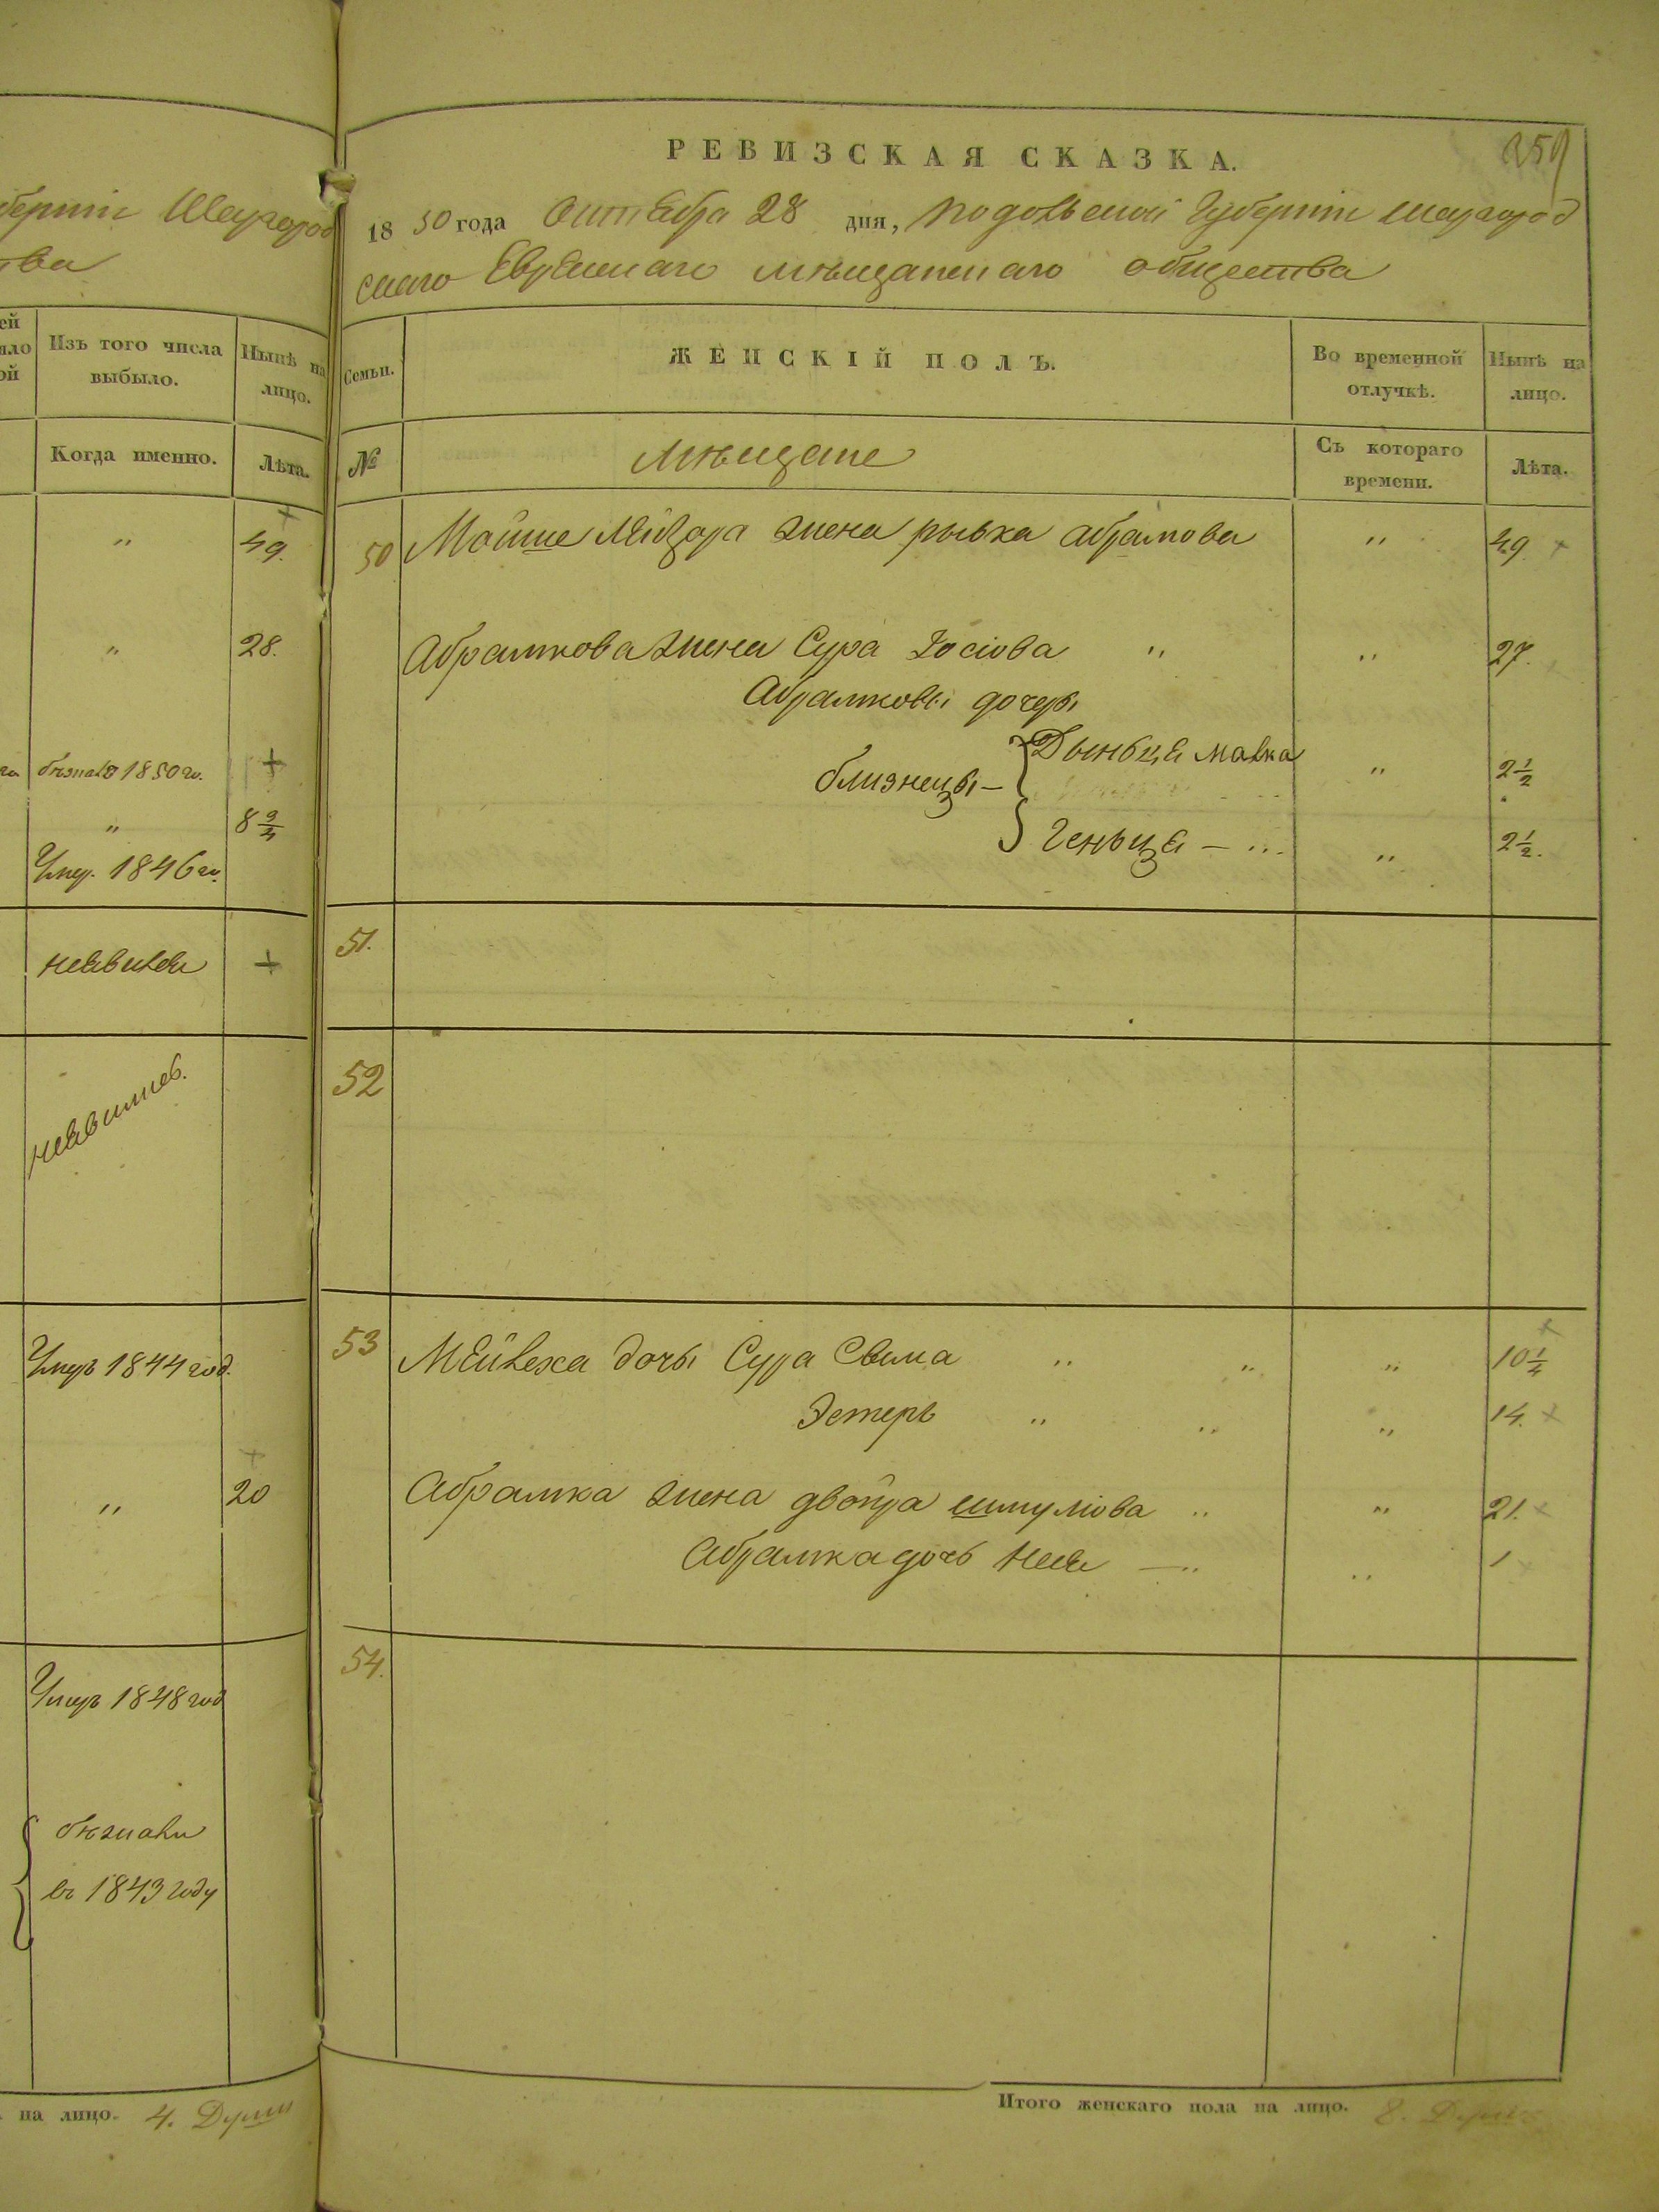 Шаргород
тва
Изъ того числа выбыло.
Нынѣ на лицо.
Когда именно.
Лѣта.
" 49.
" 28.
бѣжалъ 1850 г. +
" 8 3/4
Умер. 1846 г.
неявился +
неявился.
Умеръ 1844 год.
" 20
Умеръ 1848 год
бѣжали
въ 1843 году
на лицо. 4. Души
259
РЕВИЗСКАЯ СКАЗКА.
1850 года Октября 28 дня, Подольской Губерніи Шаргород
скаго Еврейскаго мѣщанскаго общества
Семьи.
ЖЕНСКІЙ ПОЛЪ.
Во временной отлучкѣ.
Нынѣ на лицо.
№
Мѣщане
Съ котораго времени.
Лѣта.
50 Мойше Лейзора жена рывка абрамова " 49
Абрамкова жена Сура Іосіова " " 27.
Абрамковы дочеры
близнецы – Дыньця малка " 2 1/2
Геньця – " " 2 1/2.
51.
52
53 Мейлеха дочь Сура Свима " " " 10 1/4
Эстеръ " " " 14.
Абрамка жена двойра шмуліова " " 21.
Абрамка дочь Неся — " " 1
54.
Итого женскаго пола на лицо. 8. Душъ